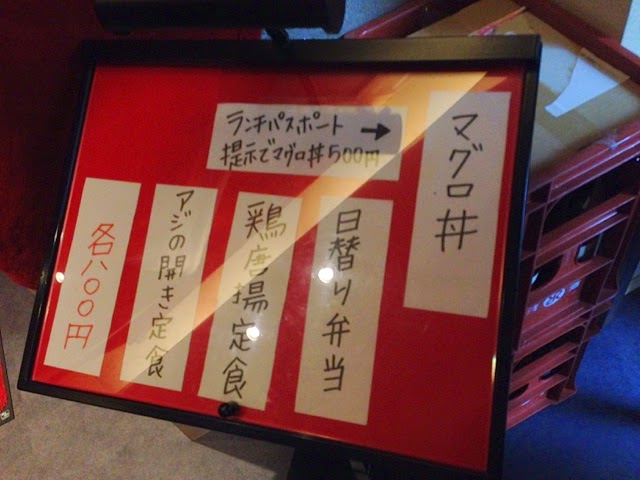 マグロ丼
ランチパスポート →
提示でマグロ丼500円
日替り弁当
鶏唐揚定食
アジの開き定食
各八〇〇円